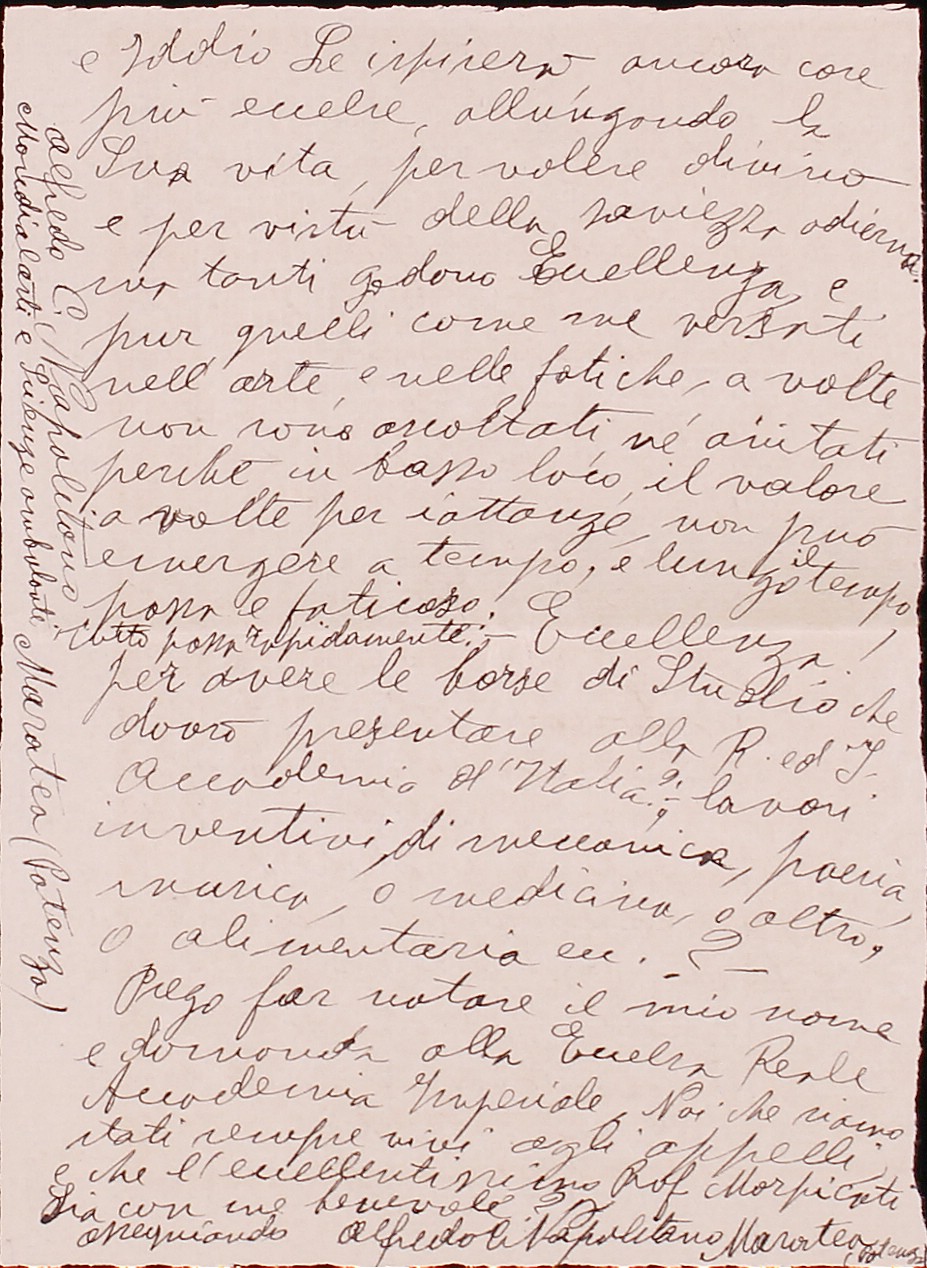 e Iddio Le ispirerà ancora cose
più eccelse, allungando la
Sua vita, per volere divino
e per virtù della saviezza odierna.
ma tanti godono Eccellenza, e
pur, quelli come me versati
nell'arte, e nelle fatiche, a volte
non sono ascoltati, né aiutati
perché in basso loco, il valore
a volte per iattanze, non può
emergere a tempo, e lungo il tempo
passa e faticoso.
tutto passa rapidamente: - Eccellenza!
per avere le borse di Studio che
dovrò presentare alla R. ed I.
Accademia d'Italia: lavori
inventivi, di meccanica, poesia,
musica, o medicina, o altro,
o alimentaria ecc. - ? -
Prego far notare il mio nome
e domanda alla Eccelsa Reale
Accademia Imperiale, Noi che siamo
stati sempre vivi agli appelli,
e che l'eccellentissimo Prof. Morpicati
sia con me benevole
ossequiando Alfredo Li Napolitano Maratea (Potenza)
Alfredo Li Napolitano
Mondialarti e Scienze ambulanti Maratea (Potenza)